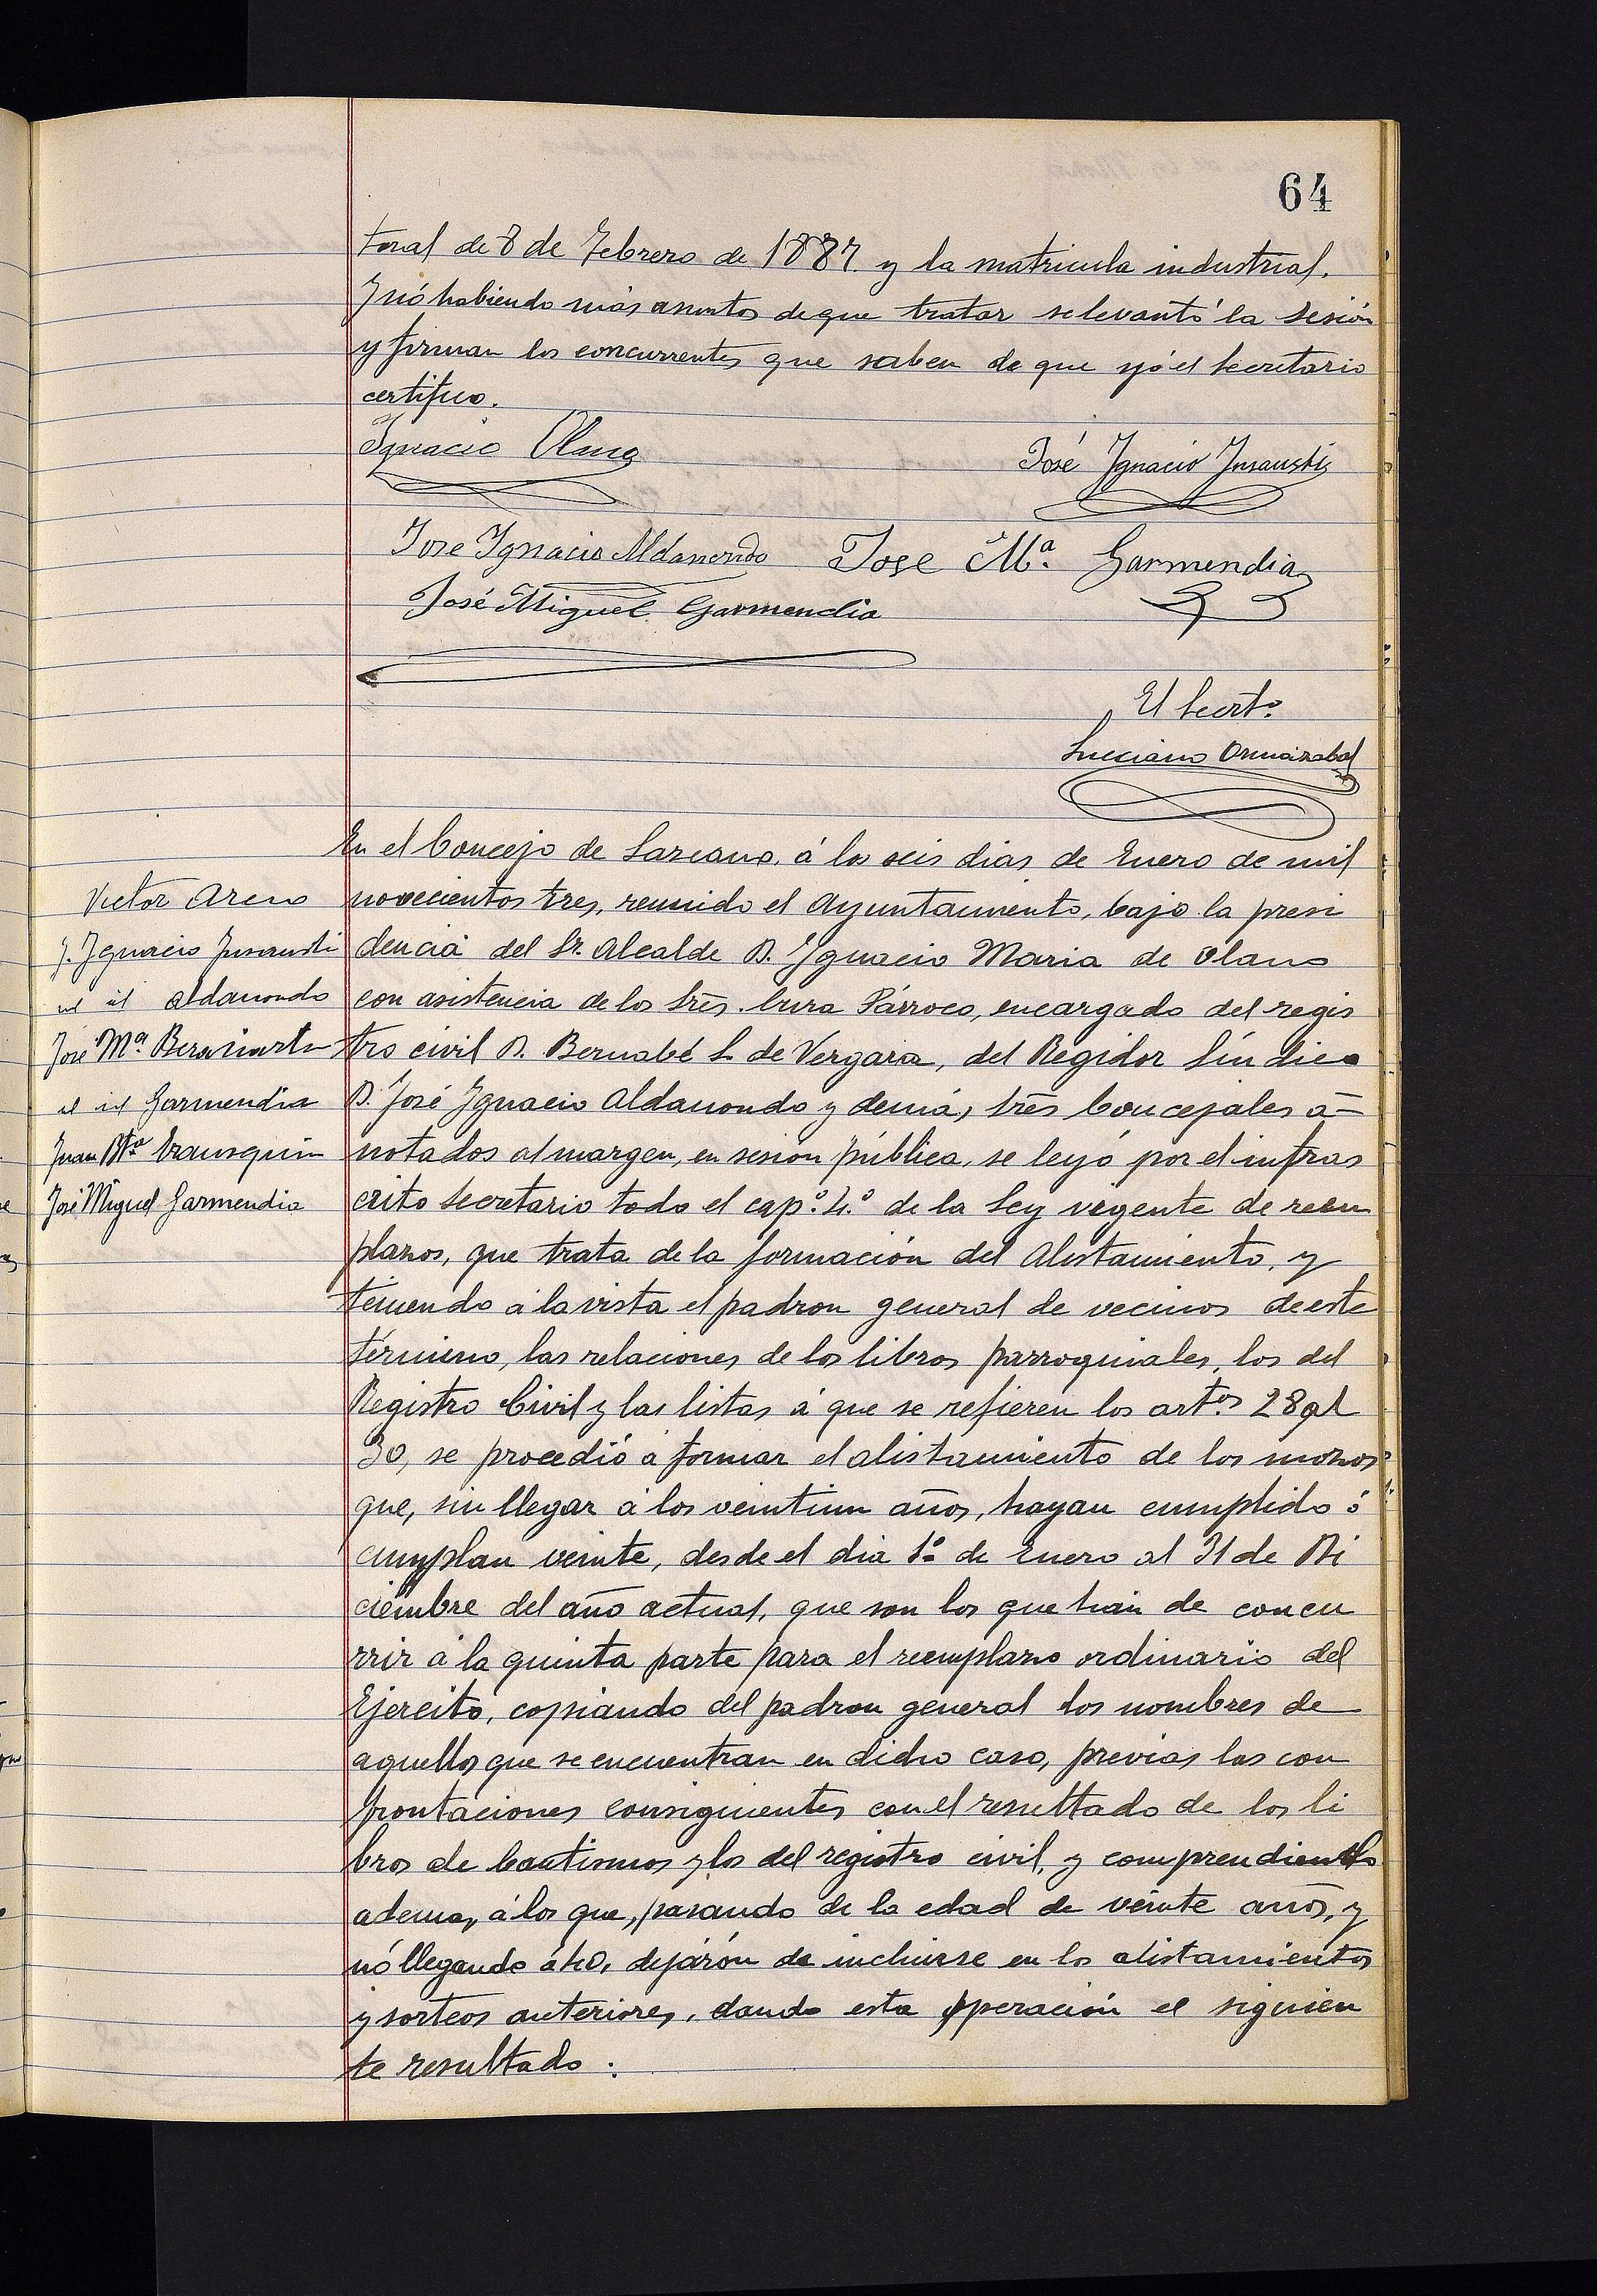 64
toral de 8 de Febrero de 1887 y la matricula industrial.
Y nó habiendo más asuntos de que tratar se levantó la sesión
y firman los concurrentes que saben de que yó el Secretario
certifico.
Ignacio Olano
José Ignacio Insausti
Jose Ignacio Aldanondo Jose Mª. Garmendia
José Miguel Garmendia
El Secrtº.
Luciano Ormazabal
En el Concejo de Lazcano, á los seis dias de Enero de mil
novecientos tres, reunido el Ayuntamiento, bajo la presi
dencia del Sr. Alcalde D. Ignacio Maria de Olano
con asistencia de los Srēs. Cura Párroco, encargado del regis
tro civil D. Bernabé L. de Vergara, del Regidor Síndico
D. José Ignacio Aldanondo y demás, Srēs Concejales a-
notados al margen, en sesión pública, se leyó por el infras
crito Secretario todo el capº. 4.º de la Ley vigente de reem
plazos, que trata de la formación del Alistamiento, y
teniendo á la vista el padron general de vecinos de este
término, las relaciones de los libros parroquiales, los del
Registro Civil y las listas á que se refieren los artºs 28 al
30, se procedió á formar el alistamiento de los mozos
que, sin llegar á los veintiun años, hayan cumplido ó
cumplan veinte, desde el dia 1º de Enero al 31 de Di
ciembre del año actual, que son los que han de concu
rrir á la quinta parte para el reemplazo ordinario del
Ejercito, copiando del padron general los nombres de
aquellos que se encuentran en dicho caso, previas las con
frontaciones consiguientes con el resultado de los li
bros de bautismos y los del registro civil, y comprendiendo
ademas, á los que, pasando de la edad de veinte años, y
nó llegando á 40, dejarón de incluirse en los alistamientos
y sorteos anteriores, dando esta operación el siguien
te resultado.
Victor Areno
J. Ignacio Insausti
id id Aldanondo
José Mª
id id Garmendia
Juan Btª
José Miguel Garmendia